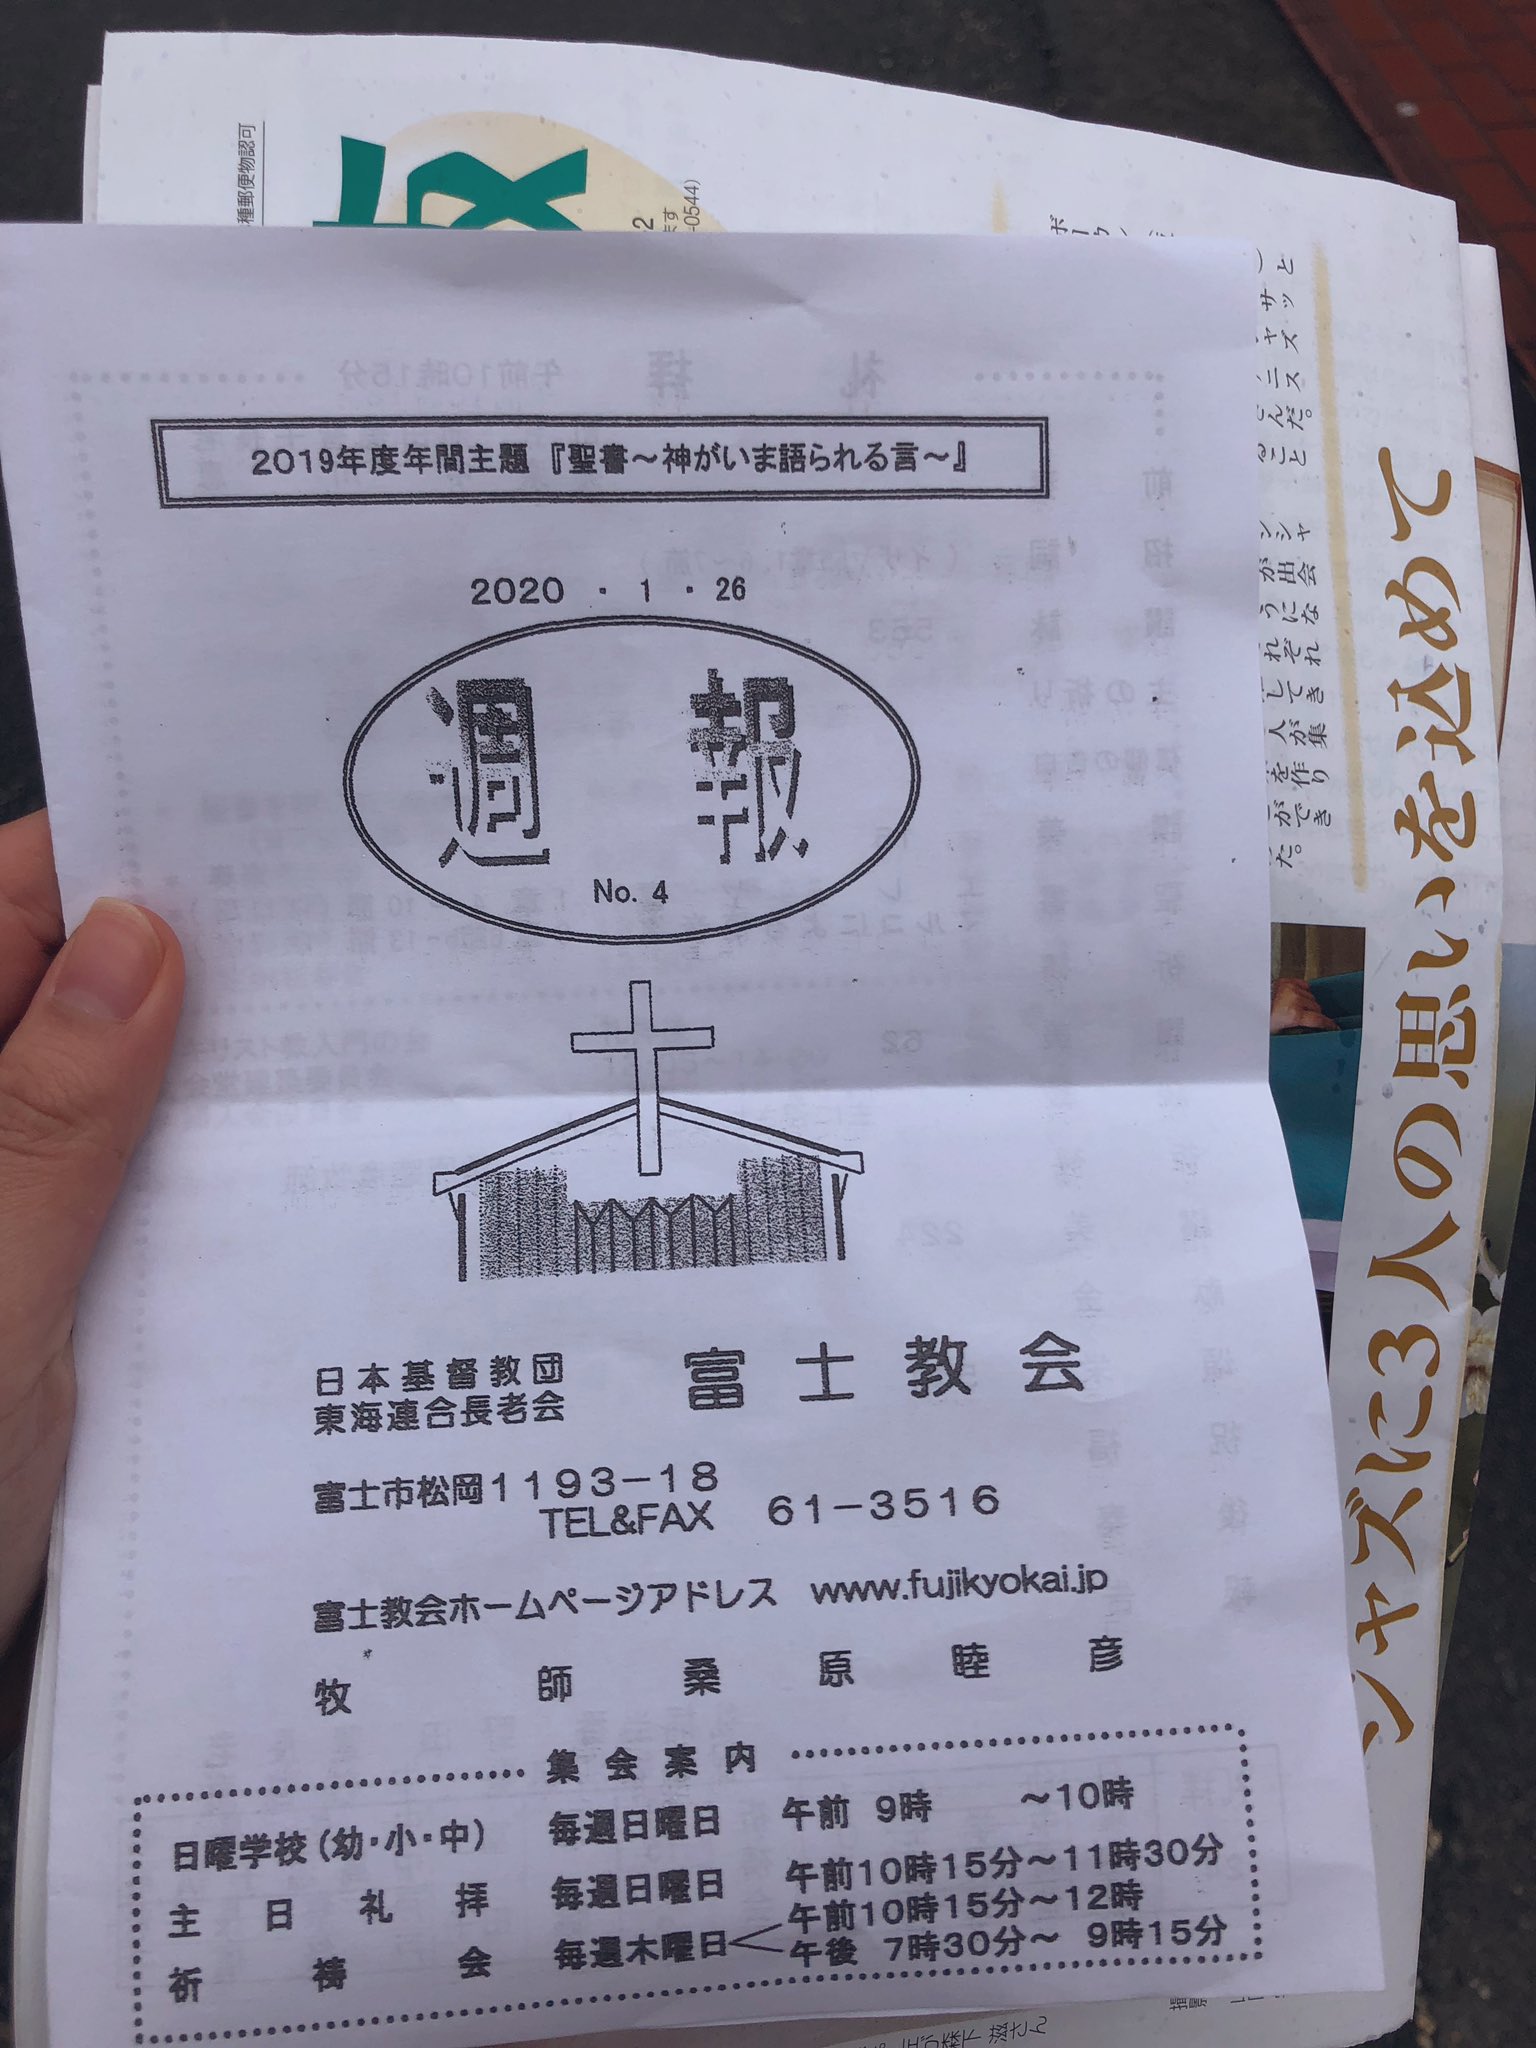 2019年度年間主題『聖書～神がいま語られる言～』
2020・1・26
週報
No. 4
日本基督教団
東海連合長老会
富士教会
富士市松岡1193－18
TEL&FAX 61－3516
富士教会ホームページアドレス www.fujikyokai.jp
牧師 桑原睦彦
集会案内
日曜学校(幼・小・中) 毎週日曜日 午前 9時 ～10時
主日礼拝 毎週日曜日 午前10時15分～11時30分
祈祷会 毎週木曜日 午前10時15分～12時
午後 7時30分～ 9時15分
ジャズに3人の思いを込めて
種郵便物認可
0544)